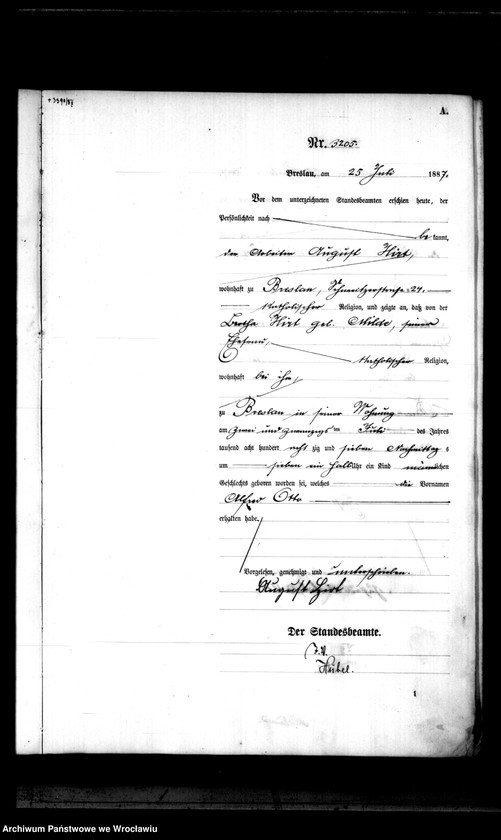 +3391/87
A.
Nr. 3205.
Breslau, am 25 Juli 1887.
Vor dem unterzeichneten Standesbeamten erschien heute, der
Persönlichkeit nach
be kannt,
der Arbeiter August Hirt,
wohnhaft zu Breslau, 24.
katholischer Religion, und zeigte an, daß von der
Bertha Hirt geb. Milde, seiner
Ehefrau,
katholischer Religion,
wohnhaft bei ihm,
zu Breslau in seiner Wohnung
am zwei und zwanzigsten Juli des Jahres
tausend acht hundert acht zig und sieben Nachmittag s
um sieben ein halb Uhr ein Kind männlichen
Geschlechts geboren worden sei, welches die Vornamen
Alfred Otto
erhalten habe.
Vorgelesen, genehmigt und unterschrieben.
August Hirt
Der Standesbeamte.
J.V.
1
Archiwum Państwowe we Wrocławiu